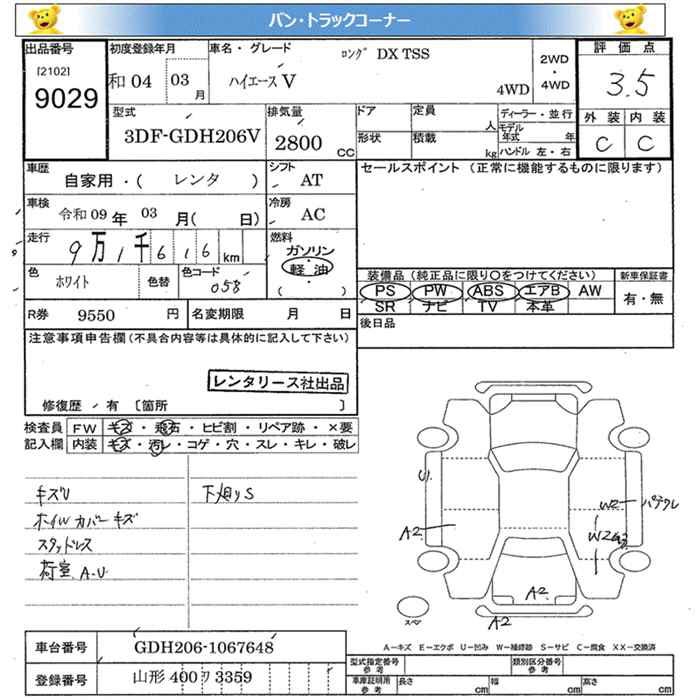 バン・トラックコーナー
出品番号
[2102]
9029
初度登録年月
和04 03月
車名・グレード
ハイエースV
ロング DX TSS
4WD
2WD
・
4WD
評価点
3.5
外装 内装
C C
型式
3DF-GDH206V
排気量
2800 CC
ドア
定員
人
形状
積載
kg
ディーラー・並行
モデル年式 年
ハンドル 左・右
車歴
自家用・( レンタ )
シフト
AT
セールスポイント (正常に機能するものに限ります)
車検
令和09年 03月( 日)
冷房
AC
走行
9万1千616km
燃料
ガソリン
・
軽油
( )
色
ホワイト
色替
色コード
058
装備品 (純正品に限り〇をつけてください)
新車保証書
PS PW ABS エアB AW
SR ナビ TV 本革
有・無
R券 9550 円
名変期限 月 日
後日品
注意事項申告欄 (不具合内容等は具体的に記入して下さい)
レンタリース社出品
修復歴 有 〔箇所 〕
検査員
記入欄
FW キズ・飛石・ヒビ割・リペア跡・×要
内装 キズ・汚レ・コゲ・穴・スレ・キレ・破レ
キズU
下廻りS
ホイルカバーキズ
スタッドレス
荷室 A.U
U1
A2
W2
パテクレ
W2
A2
スペ
A2
車台番号 GDH206-1067648
登録番号 山形 400 ワ 3359
A－キズ E－エクボ U－凹み W－補修跡 S－サビ C－腐食 XX－交換済
型式指定番号
参考
類別区分番号
参考
車庫証明用
参考
長さ cm 幅 cm 高さ cm